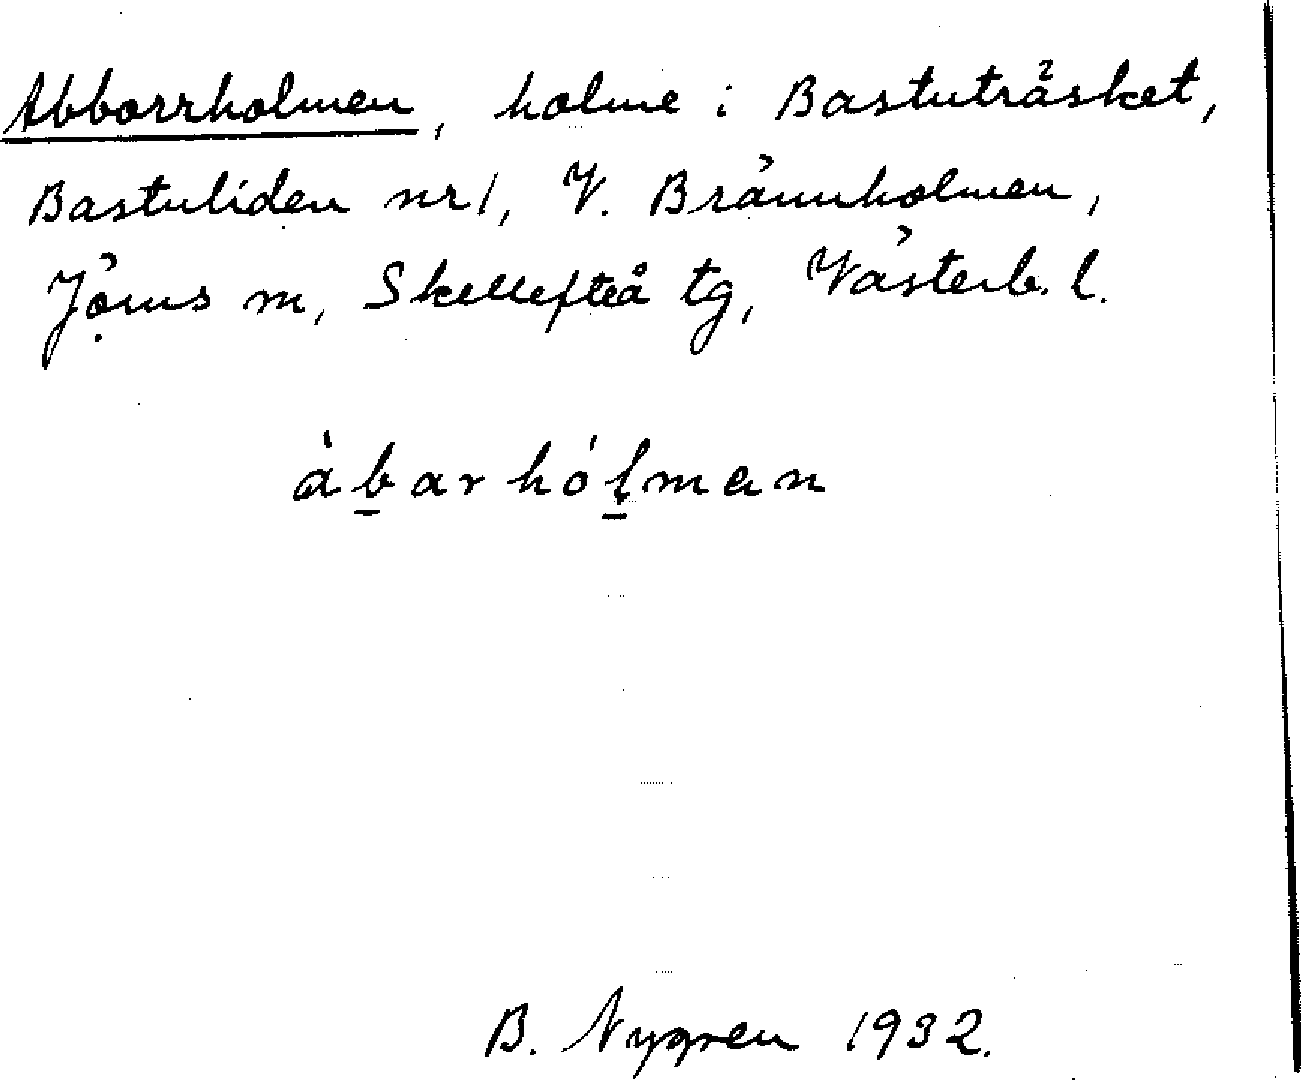 Abborrholmen, holme i Bastuträsket,
Bastuliden nr 1, V. Brännholmen,
Jörns m, Skellefteå tg, Västerb. l.
àbarhólman
B. Nygren 1932.